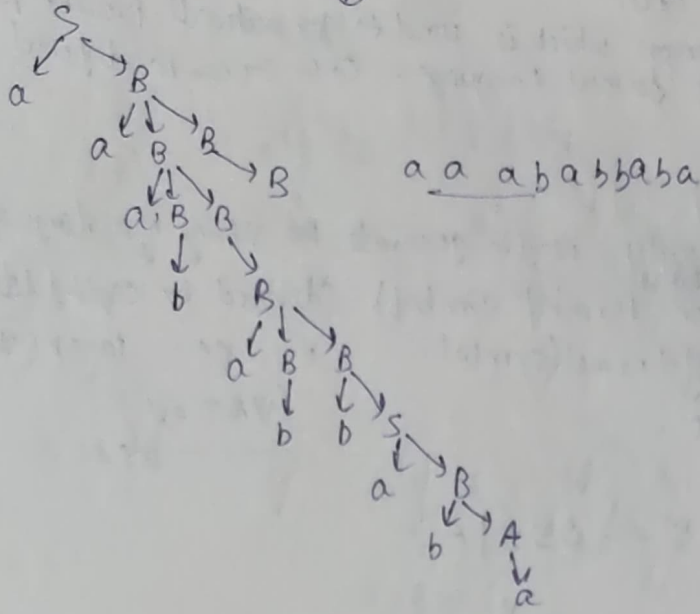 S
a B
a B B
B
a a ababbaba
a B B
b
B
a B B
b b S
a B
b A
a